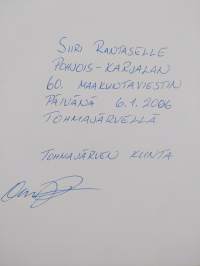 SIIRI RANTASELLE
POHJOIS-KARJALAN
60. MAAKUNTAVIESTIN
PÄIVÄNÄ 6.1.2006
TOHMAJÄRVELLÄ
TOHMAJÄRVEN KUNTA